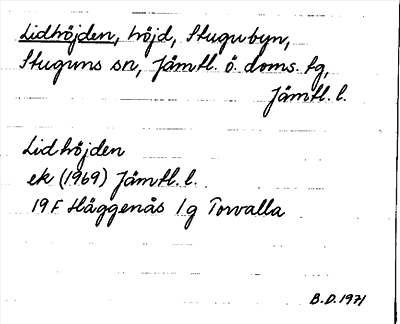 Lidhöjden, höjd, Stugubyn,
Stuguns sn, Jämtl. ö. doms. tg,
Jämtl. l.
Lidhöjden
ek (1969) Jämtl. l.
19F Häggenås 1g Torvalla
B.D. 1971